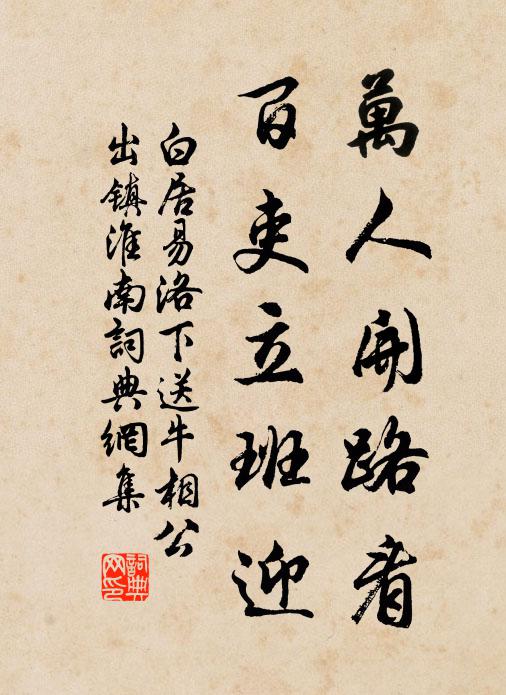 萬人開路看
百吏立班迎
白居易洛下送牛相公
出镇淮南詞典網集
詞典网印